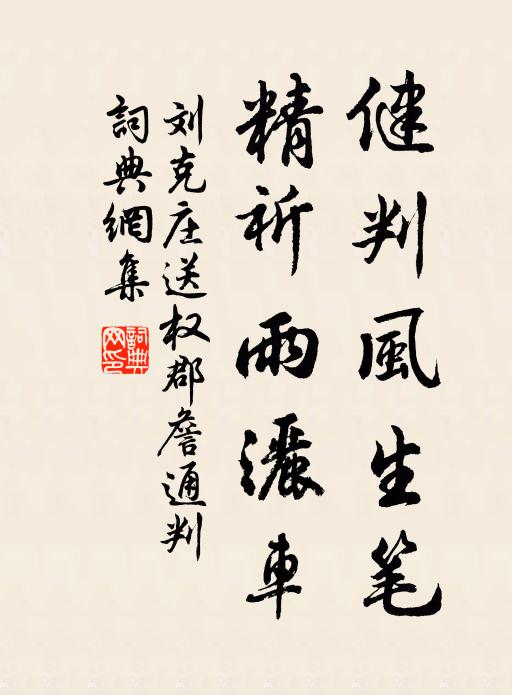 健判風生笔
精祈雨灑車
刘克庄送权郡詹通判
詞典網集
詞典
网印